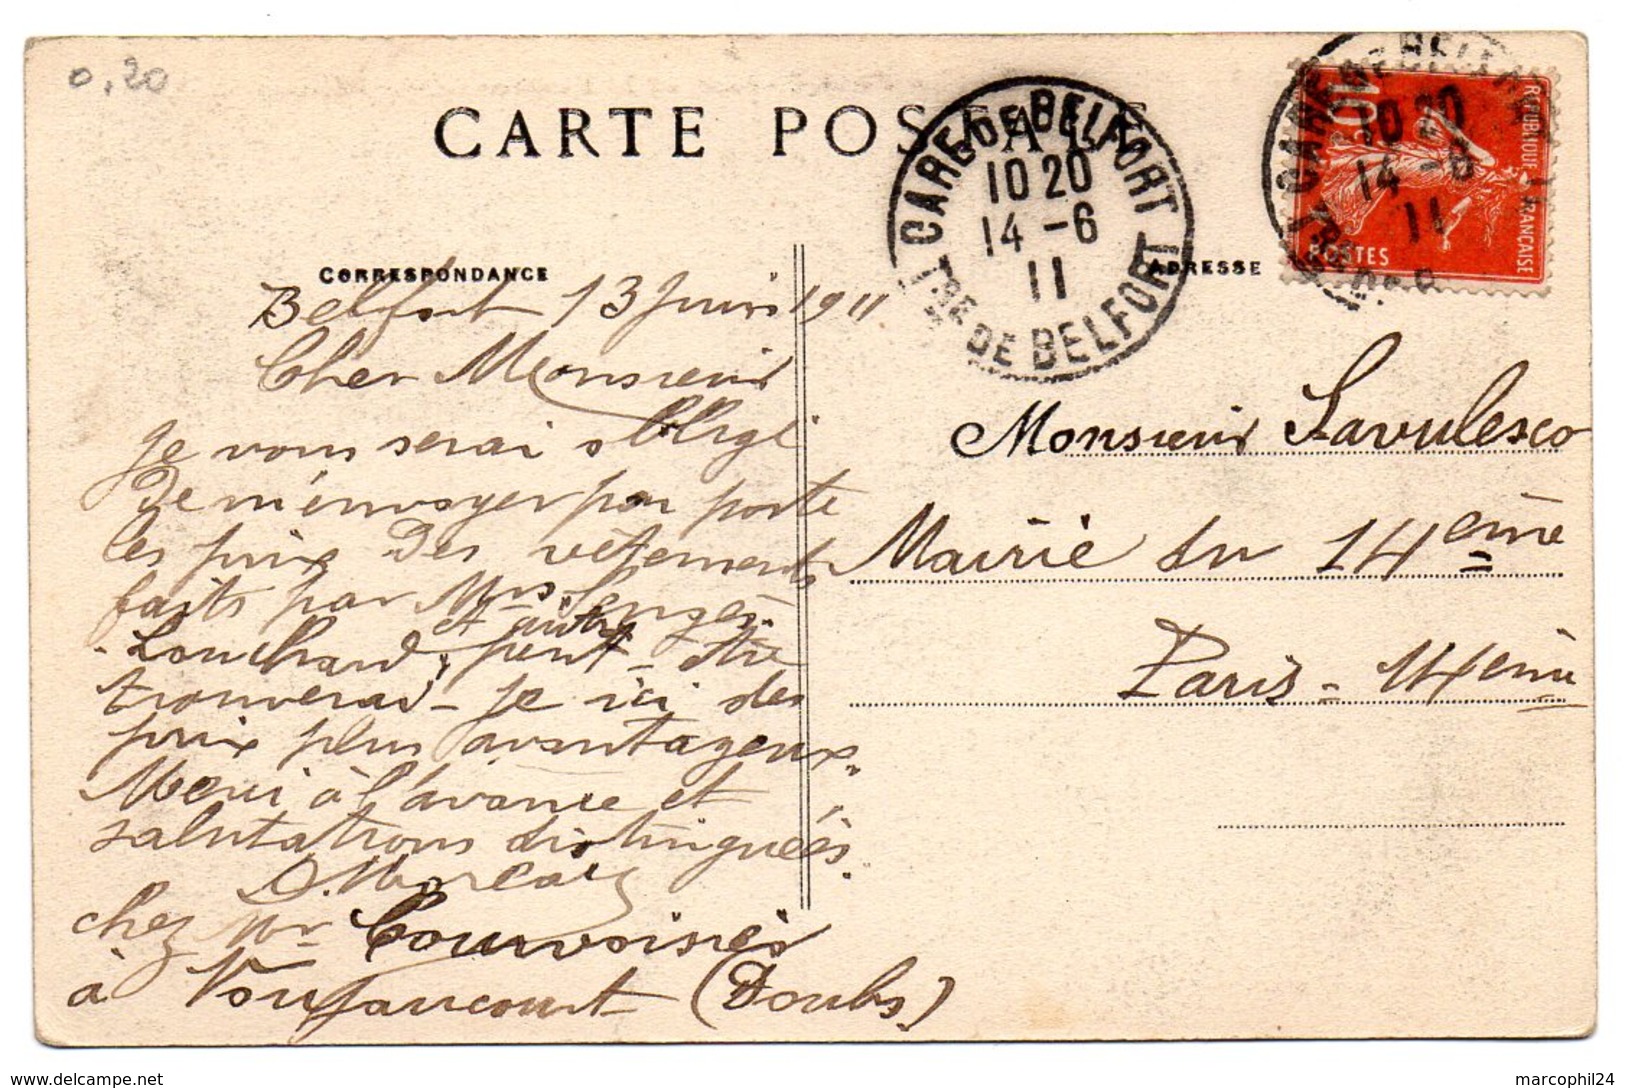 0,20
CARTE POSTALE
CORRESPONDANCE
ADRESSE
GARE DE BELFORT
10 20
14 - 6
11
TRE DE BELFORT
10
REPUBLIQUE FRANÇAISE
POSTES
10 20
14 - 6
11
Belfort 13 Juin 1911
Cher Monsieur
Je vous serai obligé
De m'envoyer par poste
les prix Des vêtements
faits par Mrs
et autre
Louchard, peut-être
trouverai-je ici des
prix plus avantageux.
Merci à l'avance et
salutations distinguées.
chez Mr Courvoisier
à Voujaucourt (Doubs)
Monsieur Savulesco
Mairie du 14ème
Paris - 14ème
marcophil24